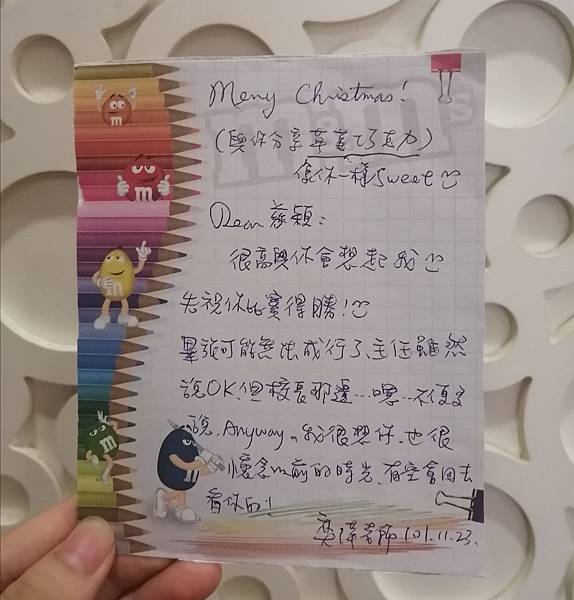 Merry Christmas!
(與你分享草莓巧克力)
像你一樣 Sweet
Dear 慈穎:
很高興你會想起我
先祝你比賽得勝!
畢旅可能無法成行了、主任雖然
說OK,但校長那邊…嘿…不便多
說,Anyway,我很想你、也很
懷念以前的時光,有空會回去
看你的!
老師 101.11.23.
m&m's
m
m
m
m